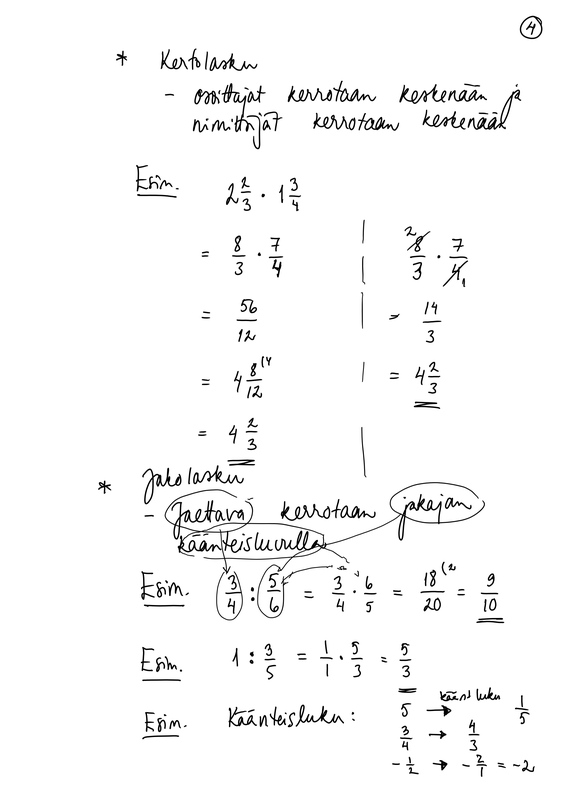 4
* Kertolasku
- osoittajat kerrotaan keskenään ja
nimittäjät kerrotaan keskenään
Esim. 2 2/3 · 1 3/4
= 8/3 · 7/4
= 56/12
= 4 8/12 (4
= 4 2/3
2 8/3 · 7/4 1
= 14/3
= 4 2/3
* Jakolasku
- Jaettava kerrotaan jakajan
käänteisluvulla
Esim. 3/4 : 5/6 = 3/4 · 6/5 = 18/20 (2 = 9/10
Esim. 1 : 3/5 = 1/1 · 5/3 = 5/3
Esim. Käänteisluku :
käänt luku
5 → 1/5
3/4 → 4/3
-1/2 → -2/1 = -2